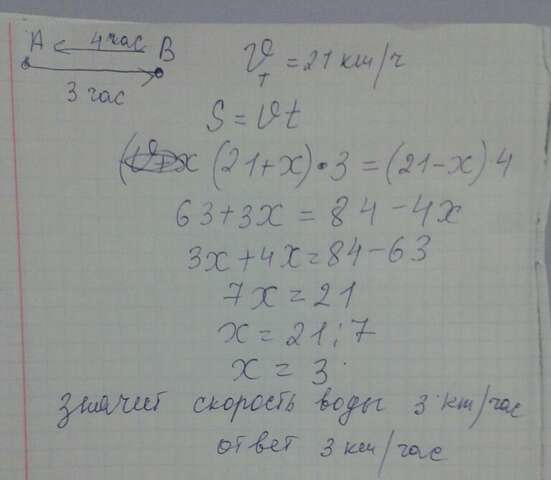 A 4 час B
3 час
V т = 21 км/ч
S = Vt
(21+x)•3 = (21-x) 4
63+3x = 84-4x
3x+4x=84-63
7x=21
x=21:7
x=3
значит скорость воды 3 км/час
ответ 3 км/час